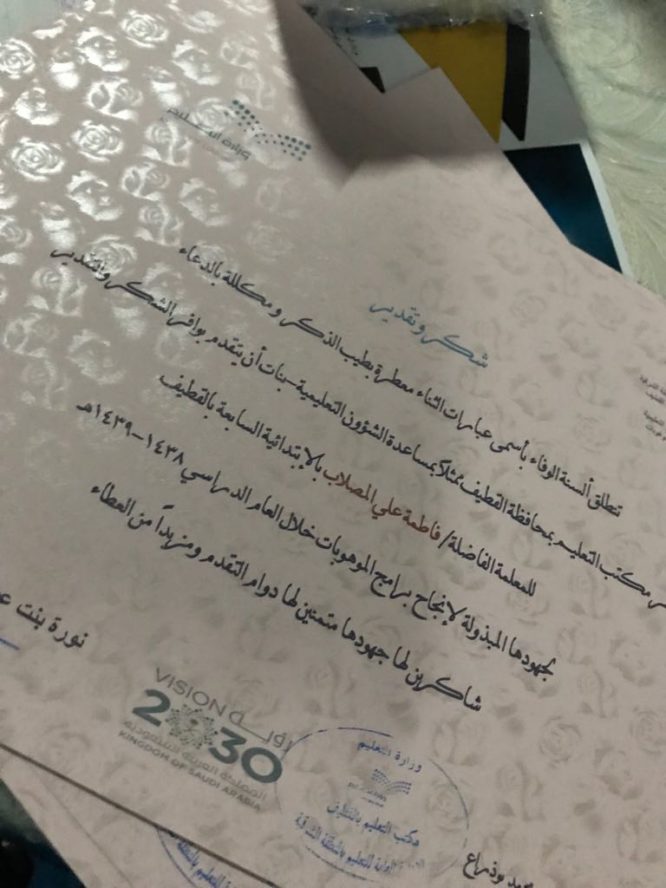 وزارة التعليم
شكر وتقدير
تنطلق ألسنة الوفاء بأسمى عبارات الثناء معطرة بطيب الذكر ومكللة بالدعاء
مكتب التعليم بمحافظة القطيف ممثلاً بمساعدة الشؤون التعليمية - بنات أن يتقدم بوافر الشكر والتقدير
للمعلمة الفاضلة/ فاطمة علي المصلاب بالإبتدائية السابعة بالقطيف
لجهودها المبذولة لإنجاح برامج الموهوبات خلال العام الدراسي ١٤٣٨-١٤٣٩هـ
شاكرين لها جهودها متمنين لها دوام التقدم ومزيداً من العطاء
نورة بنت
VISION رؤيــة
2030
المملكة العربية السعودية
KINGDOM OF SAUDI ARABIA
وزارة التعليم
مكتب التعليم بالقطيف